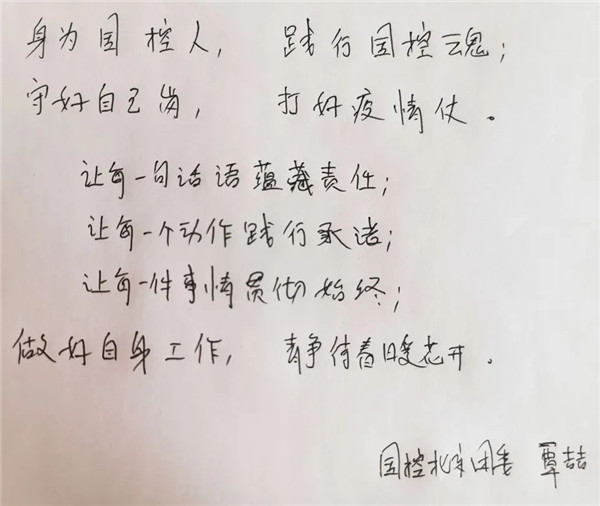 身为国控人，践行国控魂；
守好自己岗，打好疫情仗。
让每一句话语蕴藏责任；
让每一个动作践行承诺；
让每一件事情贯彻始终；
做好自身工作，静待着暖花开。
国控北京团委 覃喆